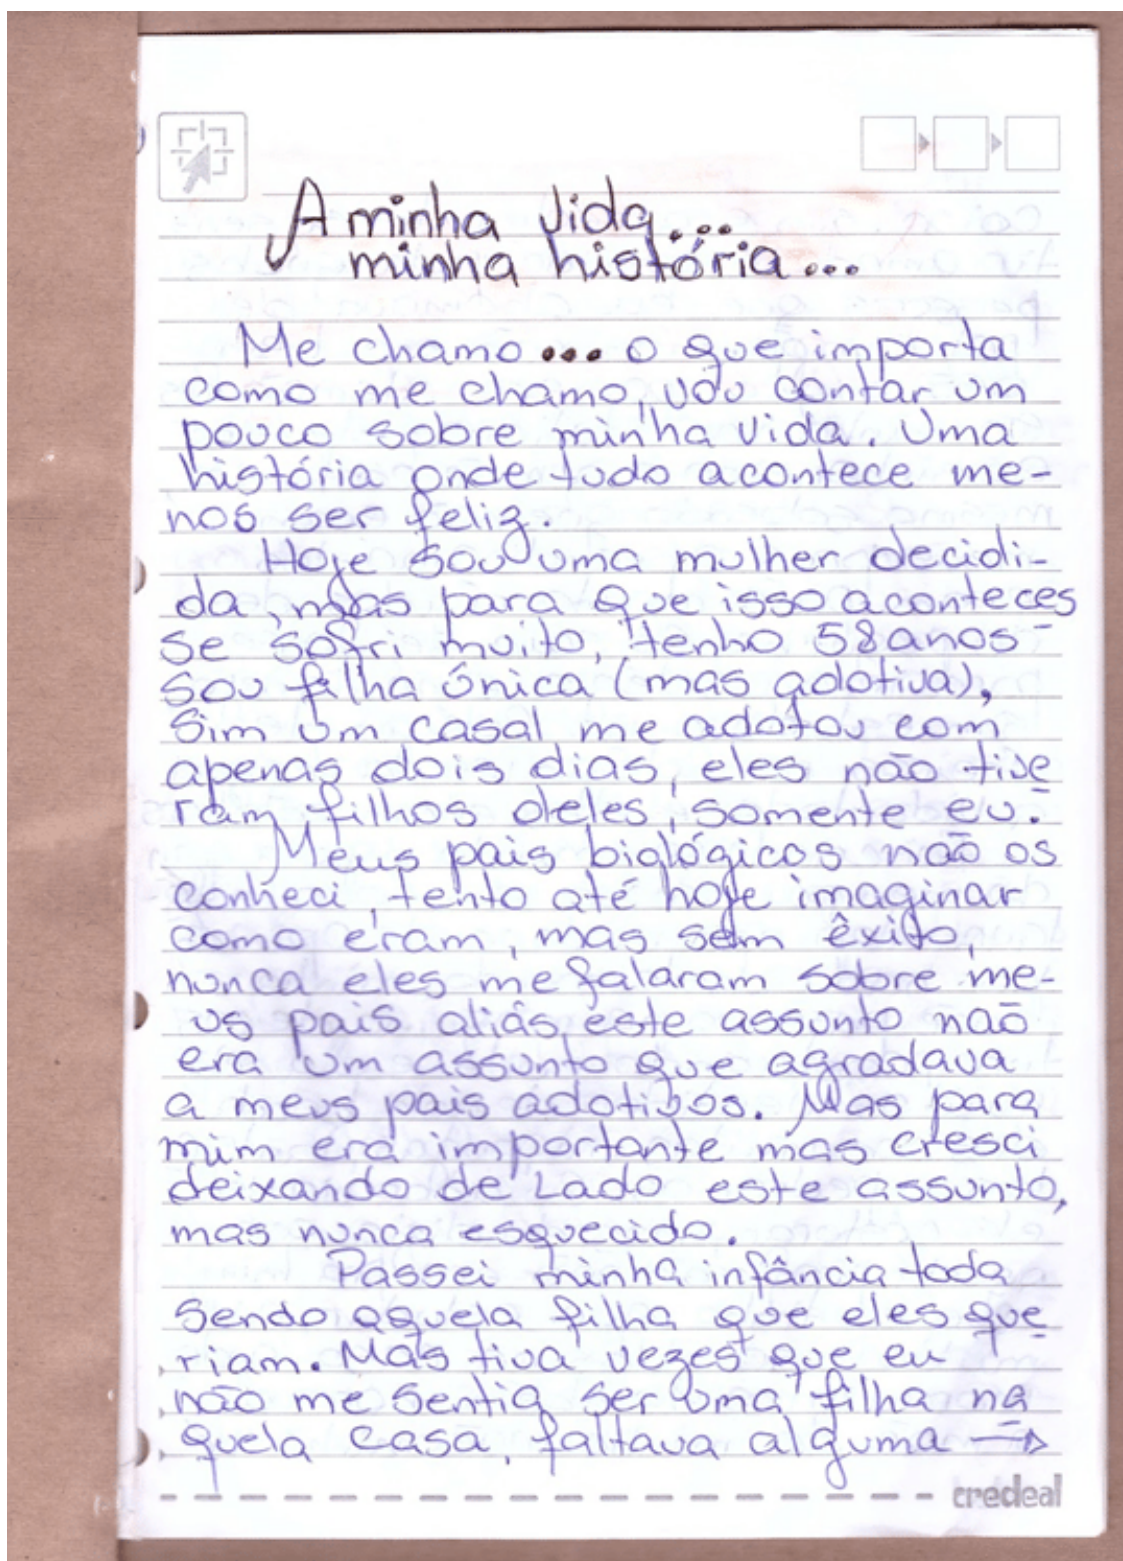 A minha vida...
minha história...
Me chamo... o que importa
como me chamo, vou contar um
pouco sobre minha vida. Uma
história onde tudo acontece me-
nos ser feliz.
Hoje sou uma mulher decidi-
da, mas para que isso aconteces
se sofri muito, tenho 58 anos
sou filha única (mas adotiva),
Sim um casal me adotou com
apenas dois dias, eles não tive
ram filhos deles, somente eu.
Meus pais biológicos não os
conheci, tento até hoje imaginar
como eram, mas sem êxito,
nunca eles me falaram sobre me-
us pais aliás este assunto não
era um assunto que agradava
a meus pais adotivos. Mas para
mim era importante mas cresci
deixando de lado este assunto,
mas nunca esquecido.
Passei minha infância toda
sendo aquela filha que eles que
riam. Mas tiva vezes que eu
não me sentia ser uma filha na
quela casa, faltava alguma →
credeal